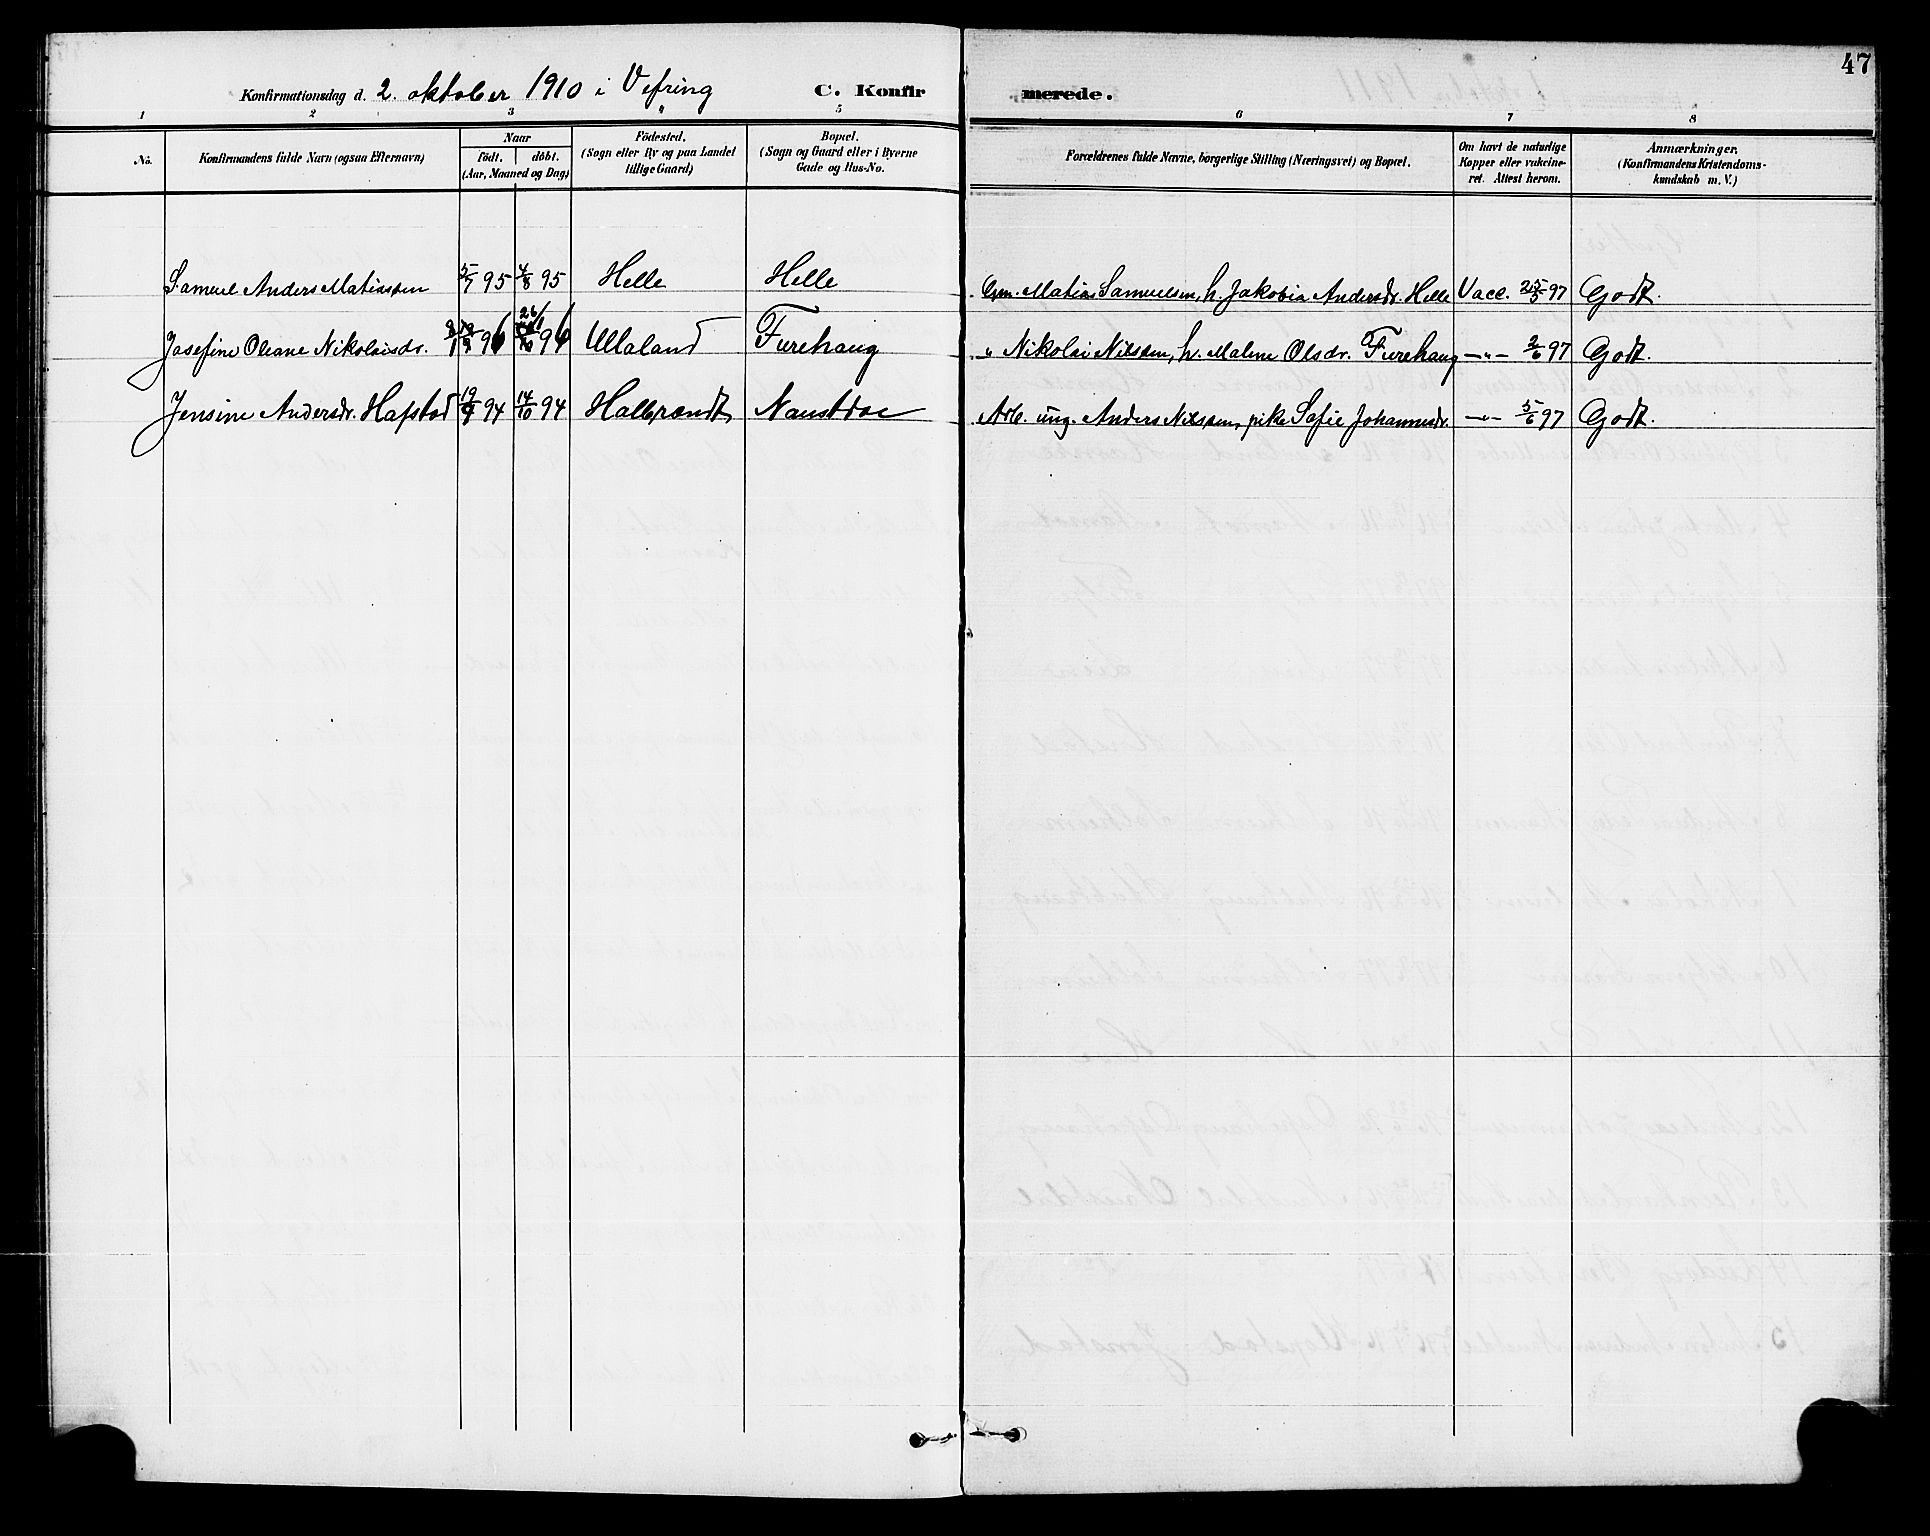 47
Konfirmationsdag d. 2. oktober 1910 i Vefring C. Konfirmerede.
1 2 3 4 5 6 7 8
No. Konfirmandens fulde Navn (ogsaa Efternavn) Naar födt. döbt. (Aar, Maaned og Dag) Födested. (Sogn eller By og paa Landet tillige Gaard) Bopæl. (Sogn og Gaard eller i Byerne Gade og Hus-No. Forældrenes fulde Navne, borgerlige Stilling (Næringsvei) og Bopæl. Om havt de naturlige Kopper eller vakcineret. Attest herom. Anmærkninger. (Konfirmandens Kristendomskundskab m. V.)
Samuel Anders Matiassen 5/7 95 4/8 95 Helle Helle Gm. Matias Samuelsen, h. Jakobia Andersdr. Helle Vacc. 25/5 97 Godt.
Josefine Oleane Nikolaisdr. 96 26/1 96 Ullaland Furehaug " Nikolai Nilssen, h. Malene Olsdr. Furehaug —"— 2/6 97 Godt.
Jensine Andersdr. Hafstad 19/9 94 14/10 94 Halbrendt Naustdal Arb. ung. Anders Nilssen, pike Sofie Johannesdr. —"— 5/6 97 Godt.